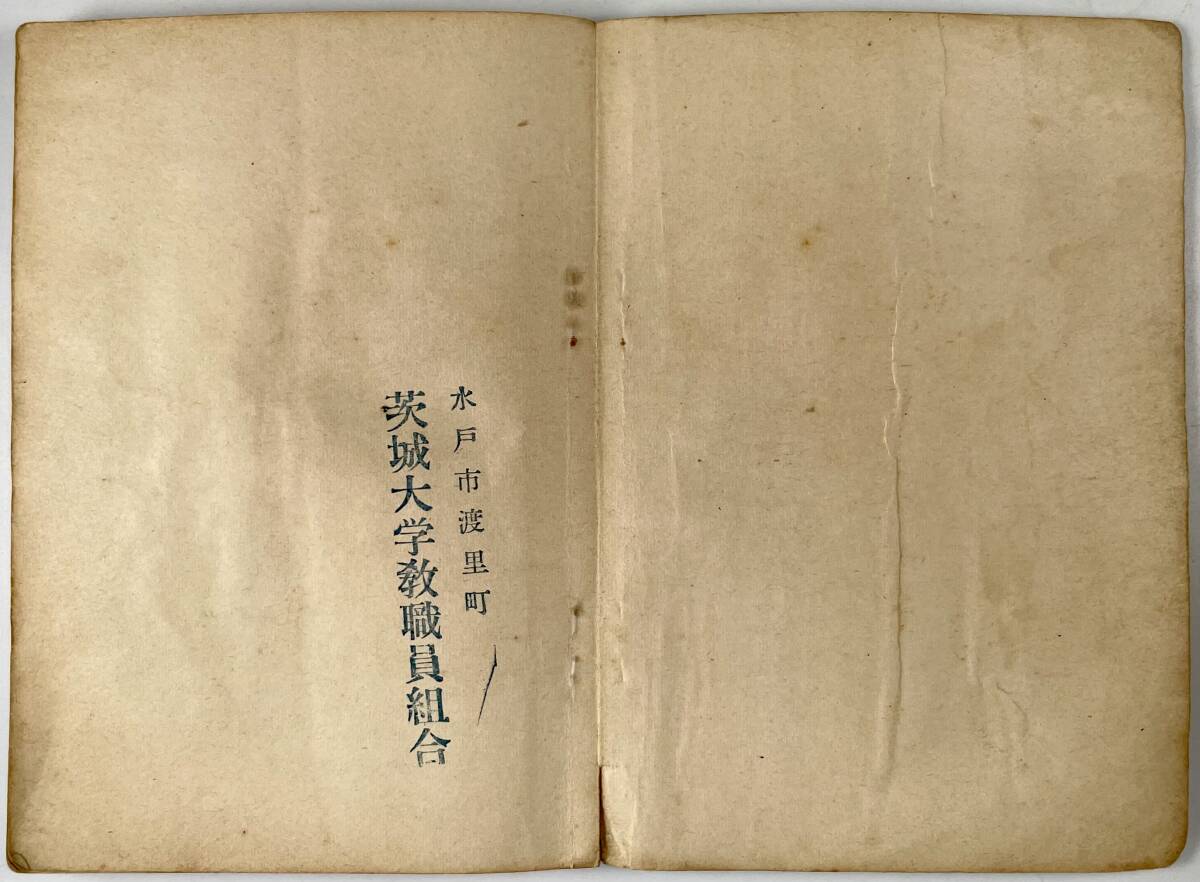 水戸市渡里町
茨城大学教職員組合